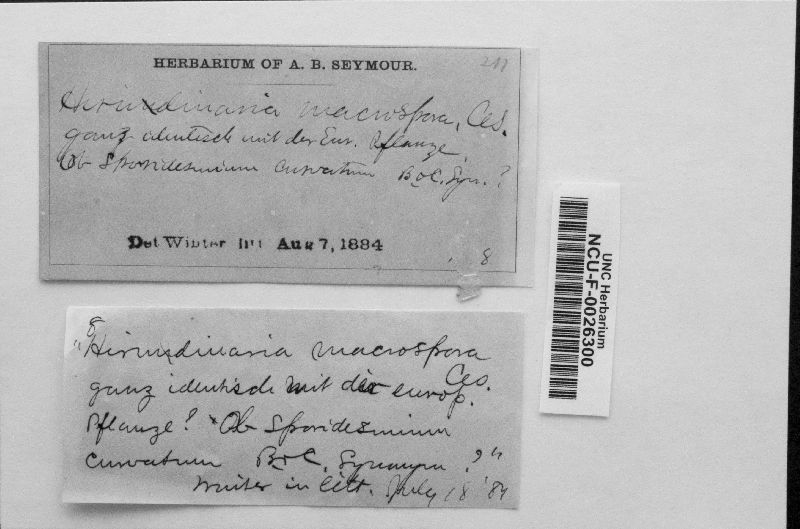 HERBARIUM OF A. B. SEYMOUR.
Hirundinaria macrospora, Ces.
ganz identisch mit der Eur. Pflanze.
Ob Sporidesmium curvatum B&C. Syn.?
Det Winter litt Aug 7, 1884
8
8
"Hirundinaria macrospora
Ces.
ganz identisch mit der europ.
Pflanze? Ob Sporidesmium
curvatum B&C. Synonym?"
Winter in litt. July 18 '84
UNC Herbarium
NCU-F-0026300